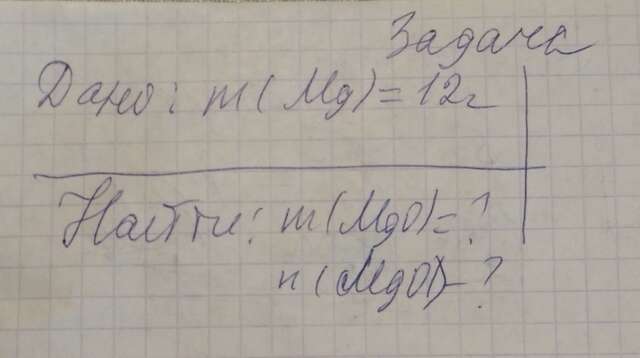 Задача
Дано: m(Mg)=12г
Найти: m(MgO)=?
n(MgO)-?